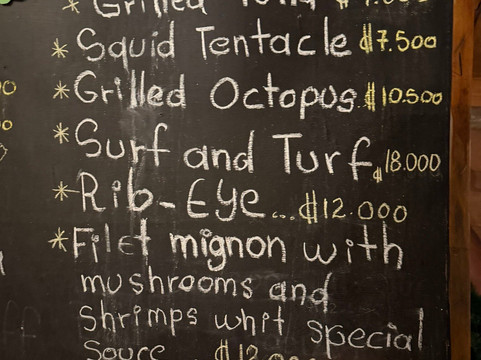 * Grilled
* Squid Tentacle ₡7.500
* Grilled Octopus ₡10.500
* Surf and Turf ₡18.000
* Rib-Eye...₡12.000
* Filet mignon with
mushrooms and
shrimps whit special
souce